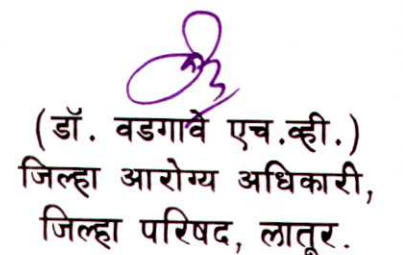 (डॉ. वडगावे एच.व्ही.)
जिल्हा आरोग्य अधिकारी,
जिल्हा परिषद, लातूर.